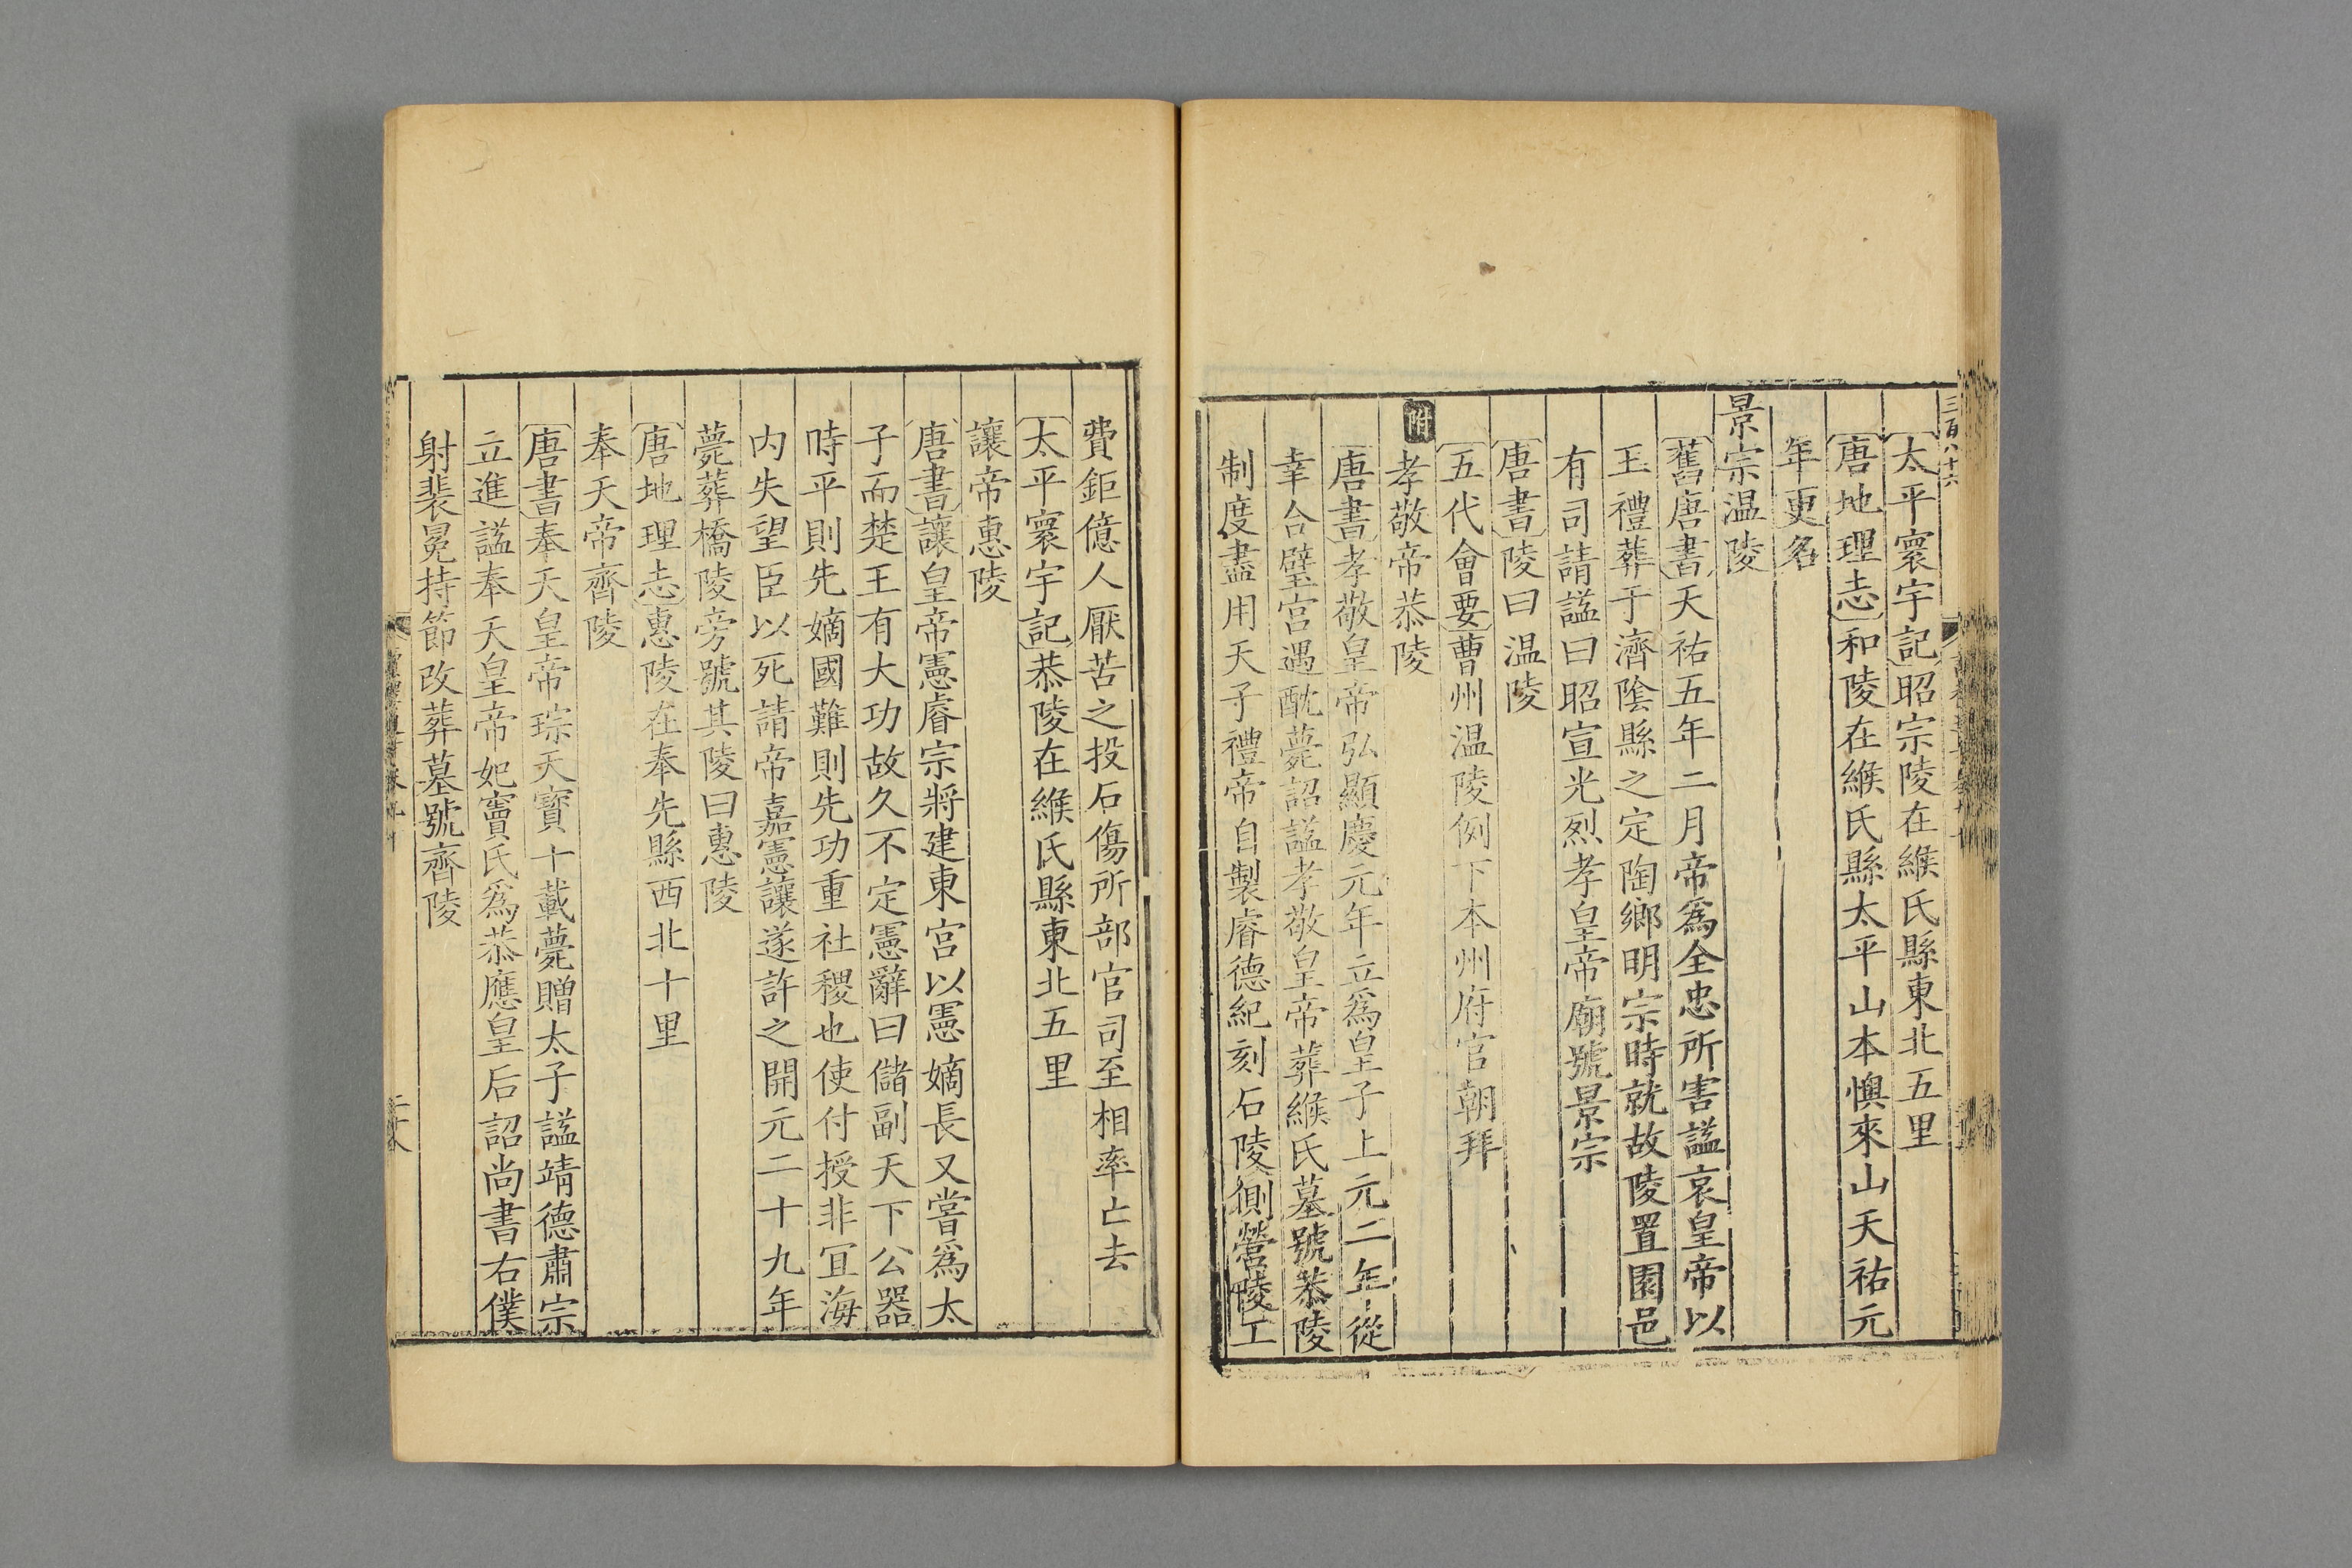 三百八十六
太平寰宇記昭宗陵在緱氏縣東北五里
唐地理志和陵在緱氏縣太平山本懊來山天祐元
年更名
景宗温陵
舊唐書天祐五年二月帝爲全忠所害諡哀皇帝以
王禮葬于濟陰縣之定陶鄉明宗時就故陵置園邑
有司請諡曰昭宣光烈孝皇帝廟號景宗
唐書陵曰温陵
五代會要曹州温陵例下本州府官朝拜
附孝敬帝恭陵
唐書孝敬皇帝弘顯慶元年立爲皇子上元二年從
幸合璧宫遇酖薨詔諡孝敬皇帝葬緱氏墓號恭陵
制度盡用天子禮帝自製睿德紀刻石陵側營陵工
費鉅億人厭苦之投石傷所部官司至相率亡去
太平寰宇記恭陵在緱氏縣東北五里
讓帝惠陵
唐書讓皇帝憲睿宗將建東宫以憲嫡長又嘗爲太
子而楚王有大功故久不定憲辭曰儲副天下公器
時平則先嫡國難則先功重社稷也使付授非冝海
内失望臣以死請帝嘉憲讓遂許之開元二十九年
薨葬橋陵旁號其陵曰惠陵
唐地理志惠陵在奉先縣西北十里
奉天帝齊陵
唐書奉天皇帝琮天寳十載薨贈太子諡靖德肅宗
立進諡奉天皇帝妃竇氏爲恭應皇后詔尚書右僕
射裴冕持節改葬墓號齊陵